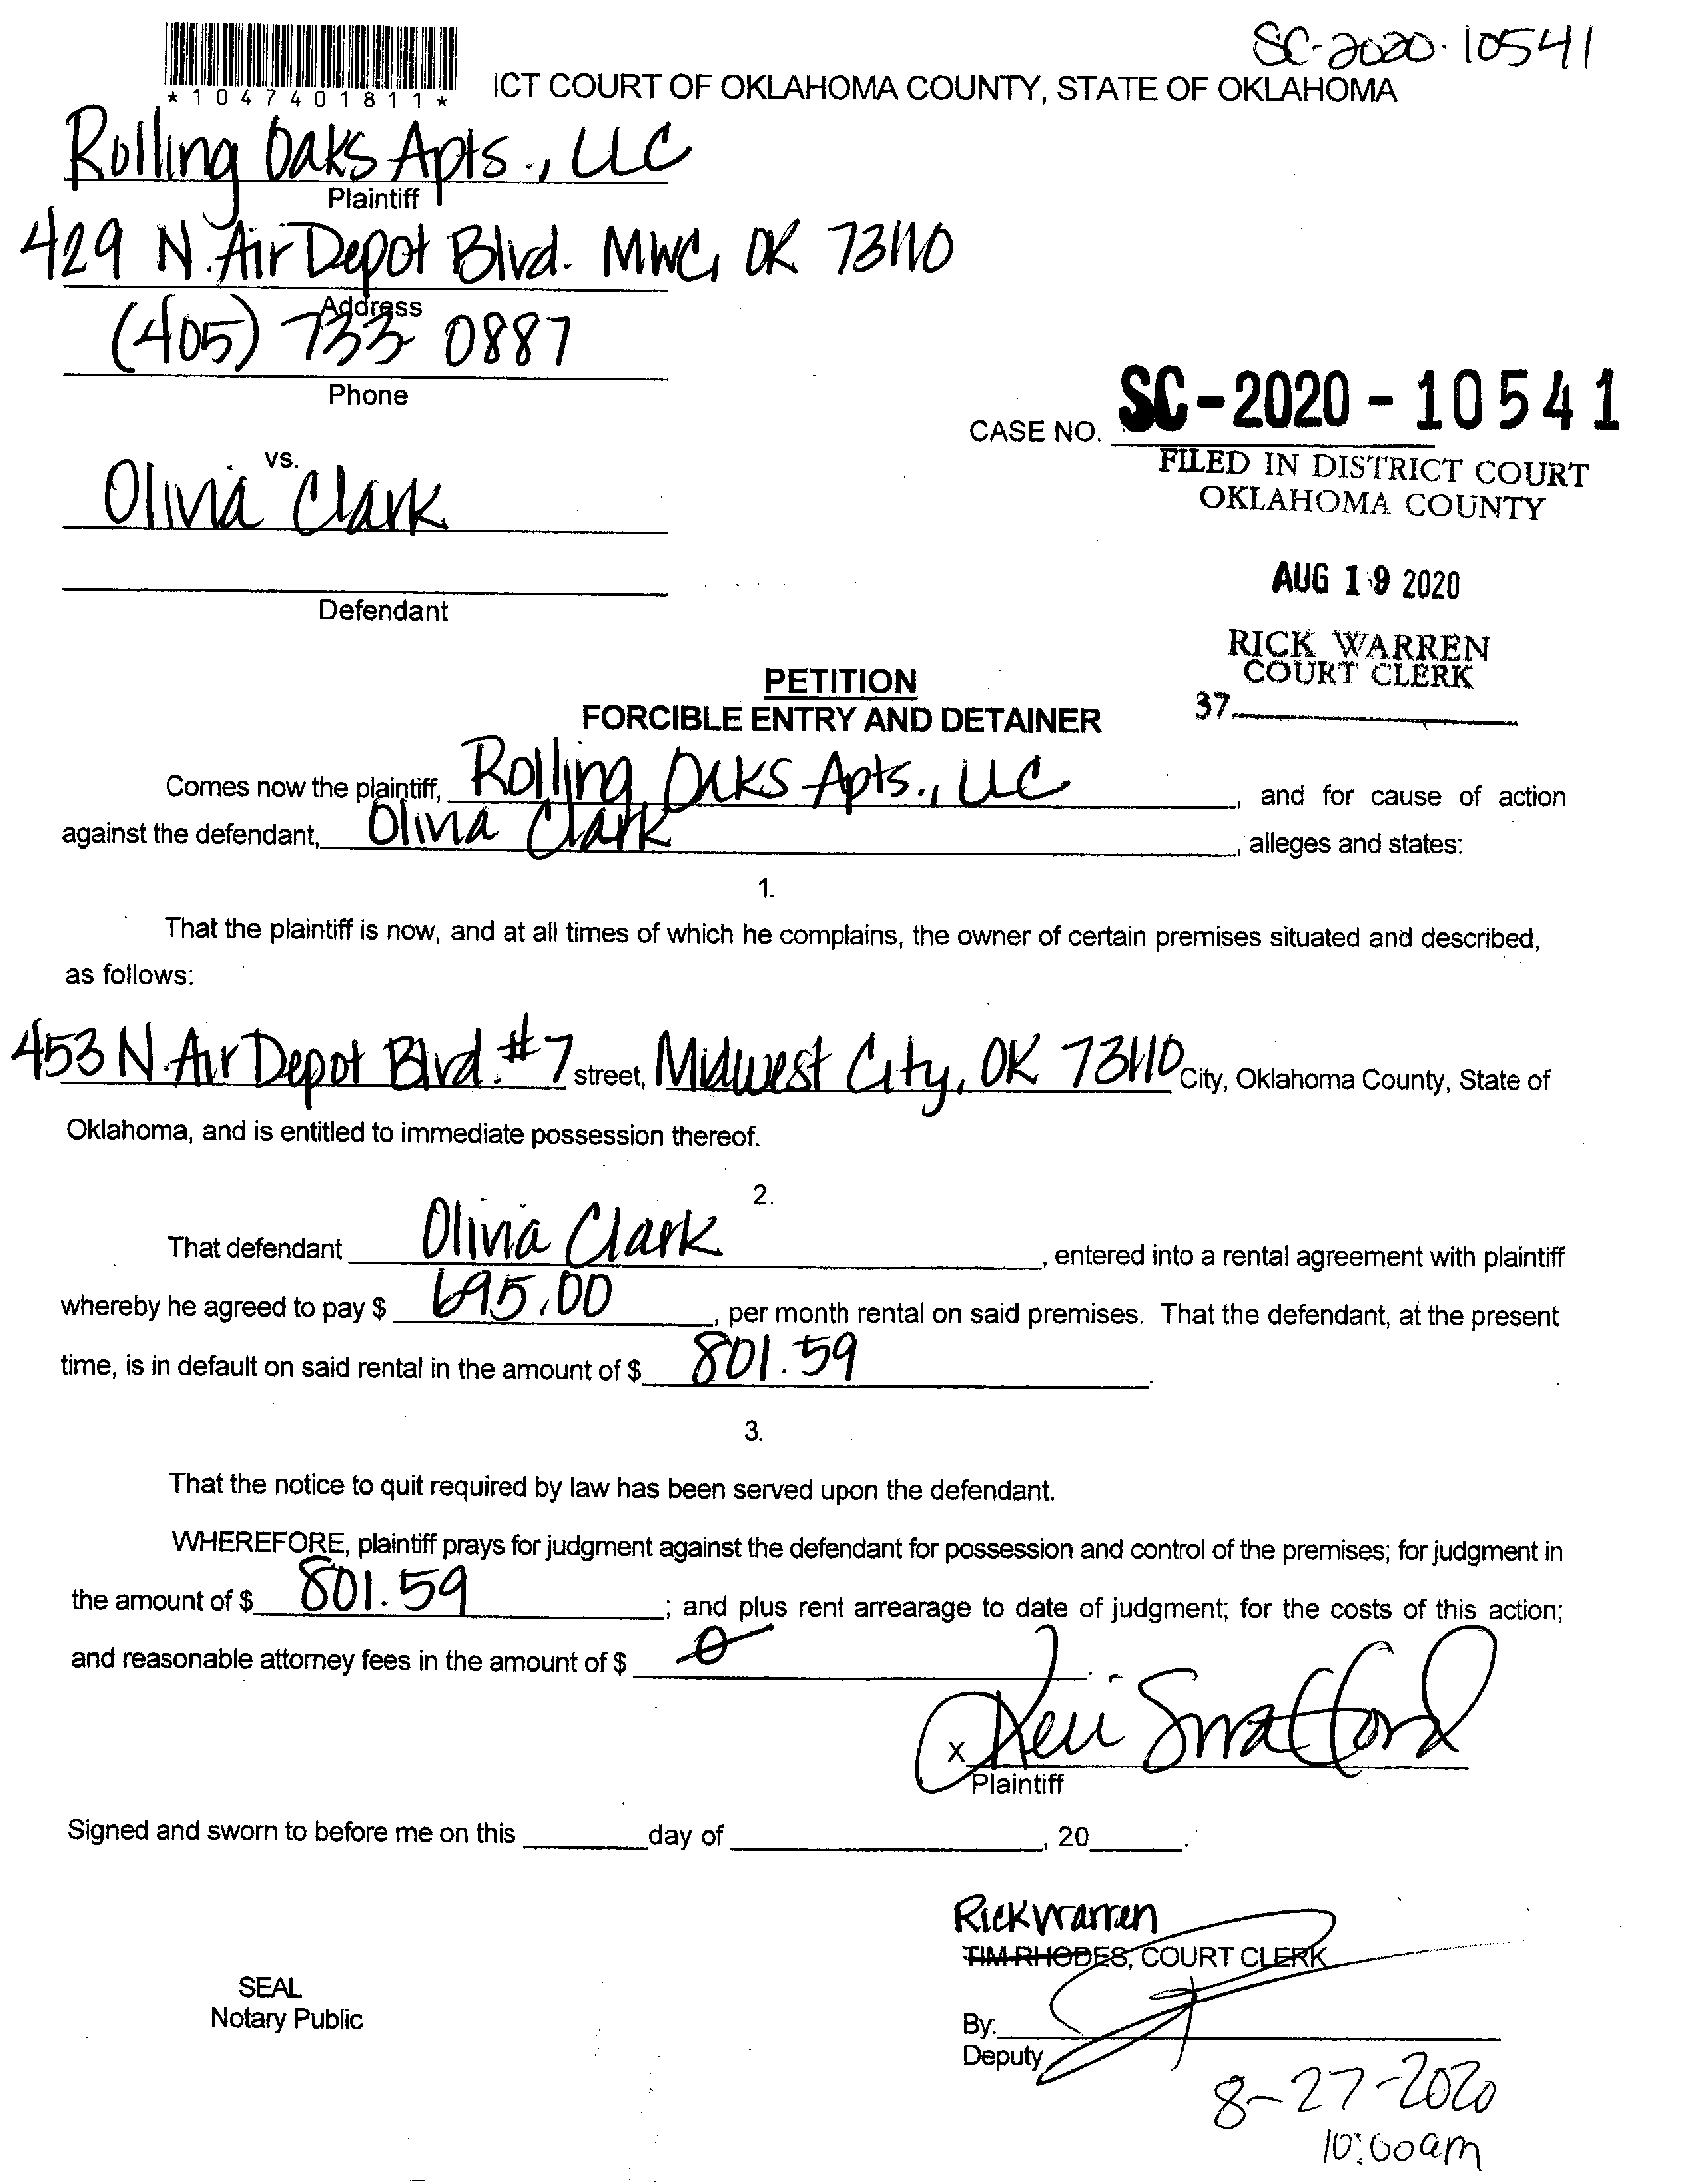 SC-2020-10541
*1047401811*
ICT COURT OF OKLAHOMA COUNTY, STATE OF OKLAHOMA
Rolling Oaks Apts., LLC
Plaintiff
429 N. Air Depot Blvd. MWC, OK 73110
Address
(405) 733 0887
Phone
CASE NO. SC-2020-10541
FILED IN DISTRICT COURT
OKLAHOMA COUNTY
vs.
Olivia Clark
AUG 19 2020
Defendant
RICK WARREN
COURT CLERK
37
PETITION
FORCIBLE ENTRY AND DETAINER
Comes now the plaintiff, Rolling Oaks Apts., LLC, and for cause of action
against the defendant, Olivia Clark, alleges and states:
1.
That the plaintiff is now, and at all times of which he complains, the owner of certain premises situated and described,
as follows:
453 N. Air Depot Blvd. #7 street, Midwest City, OK 73110 City, Oklahoma County, State of
Oklahoma, and is entitled to immediate possession thereof.
2.
That defendant Olivia Clark, entered into a rental agreement with plaintiff
whereby he agreed to pay $ 695.00, per month rental on said premises. That the defendant, at the present
time, is in default on said rental in the amount of $ 801.59.
3.
That the notice to quit required by law has been served upon the defendant.
WHEREFORE, plaintiff prays for judgment against the defendant for possession and control of the premises; for judgment in
the amount of $ 801.59; and plus rent arrearage to date of judgment; for the costs of this action;
and reasonable attorney fees in the amount of $ 0.
x
Plaintiff
Signed and sworn to before me on this ______ day of ______, 20____.
Rick Warren
TIM RHODES, COURT CLERK
SEAL
Notary Public
By:
Deputy
8-27-2020
10:00am